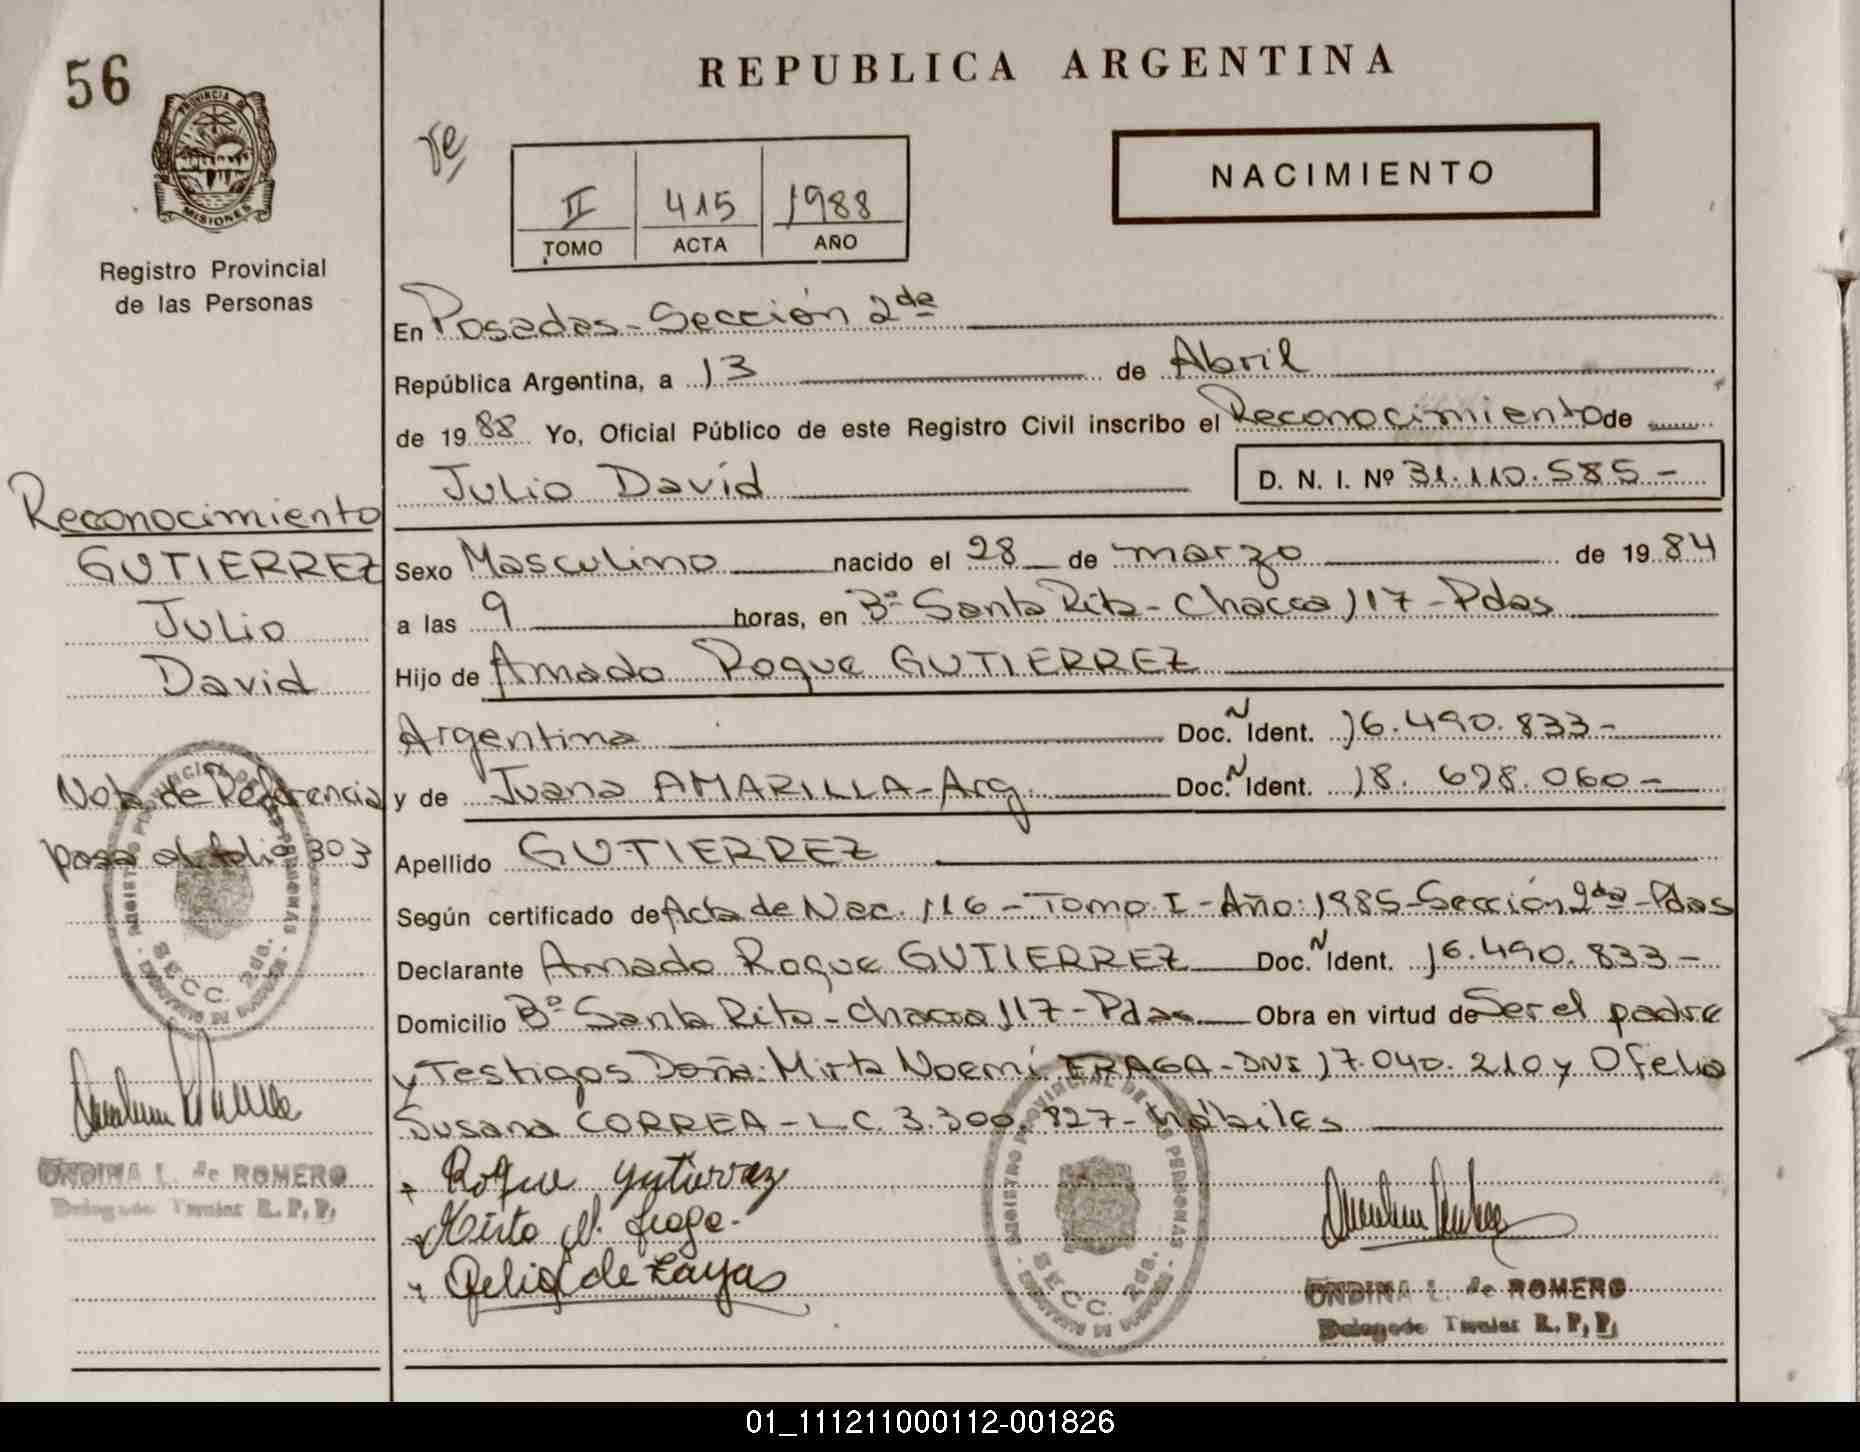 56
REPUBLICA ARGENTINA
PROVINCIA DE
MISIONES
Registro Provincial
de las Personas
II 415 1988
TOMO ACTA AÑO
NACIMIENTO
En Posadas - Sección 2da
República Argentina, a 13 de Abril
de 1988 Yo, Oficial Público de este Registro Civil inscribo el Reconocimiento de
Julio David D. N. I. Nº 31.110.585-
Reconocimiento
GUTIERREZ
Julio
David
Nota de Referencia
pasa al folio 303
Sexo Masculino nacido el 28 de marzo de 1984
a las 9 horas, en Bº Santa Rita - Chacra 117 - Pdas
Hijo de Amado Roque GUTIERREZ
Argentina Doc. N Ident. 16.490.833-
y de Juana AMARILLA - Arg. Doc. N Ident. 18.698.060-
Apellido GUTIERREZ
Según certificado de Acta de Nac. 116 - Tomo I - Año: 1985 - Sección 2da - Pdas
Declarante Amado Roque GUTIERREZ Doc. N Ident. 16.490.833-
Domicilio Bº Santa Rita - Chacra 117 - Pdas Obra en virtud de Ser el padre
y Testigos Doña: Mirta Noemí FRAGA - DNI 17.040.210 y Ofelia
Susana CORREA - L.C. 3.300.827 - Hábiles
Roque Gutierrez
Mirta N. Fraga.
Ofelia de Zayas
REGISTRO PROVINCIAL DE LAS PERSONAS
SECC. 2da.
ONDINA L. de ROMERO
Delegada Titular R. P. P.
REGISTRO PROVINCIAL DE LAS PERSONAS
SECC. 2da.
ONDINA L. de ROMERO
Delegada Titular R. P. P.
01_111211000112-001826